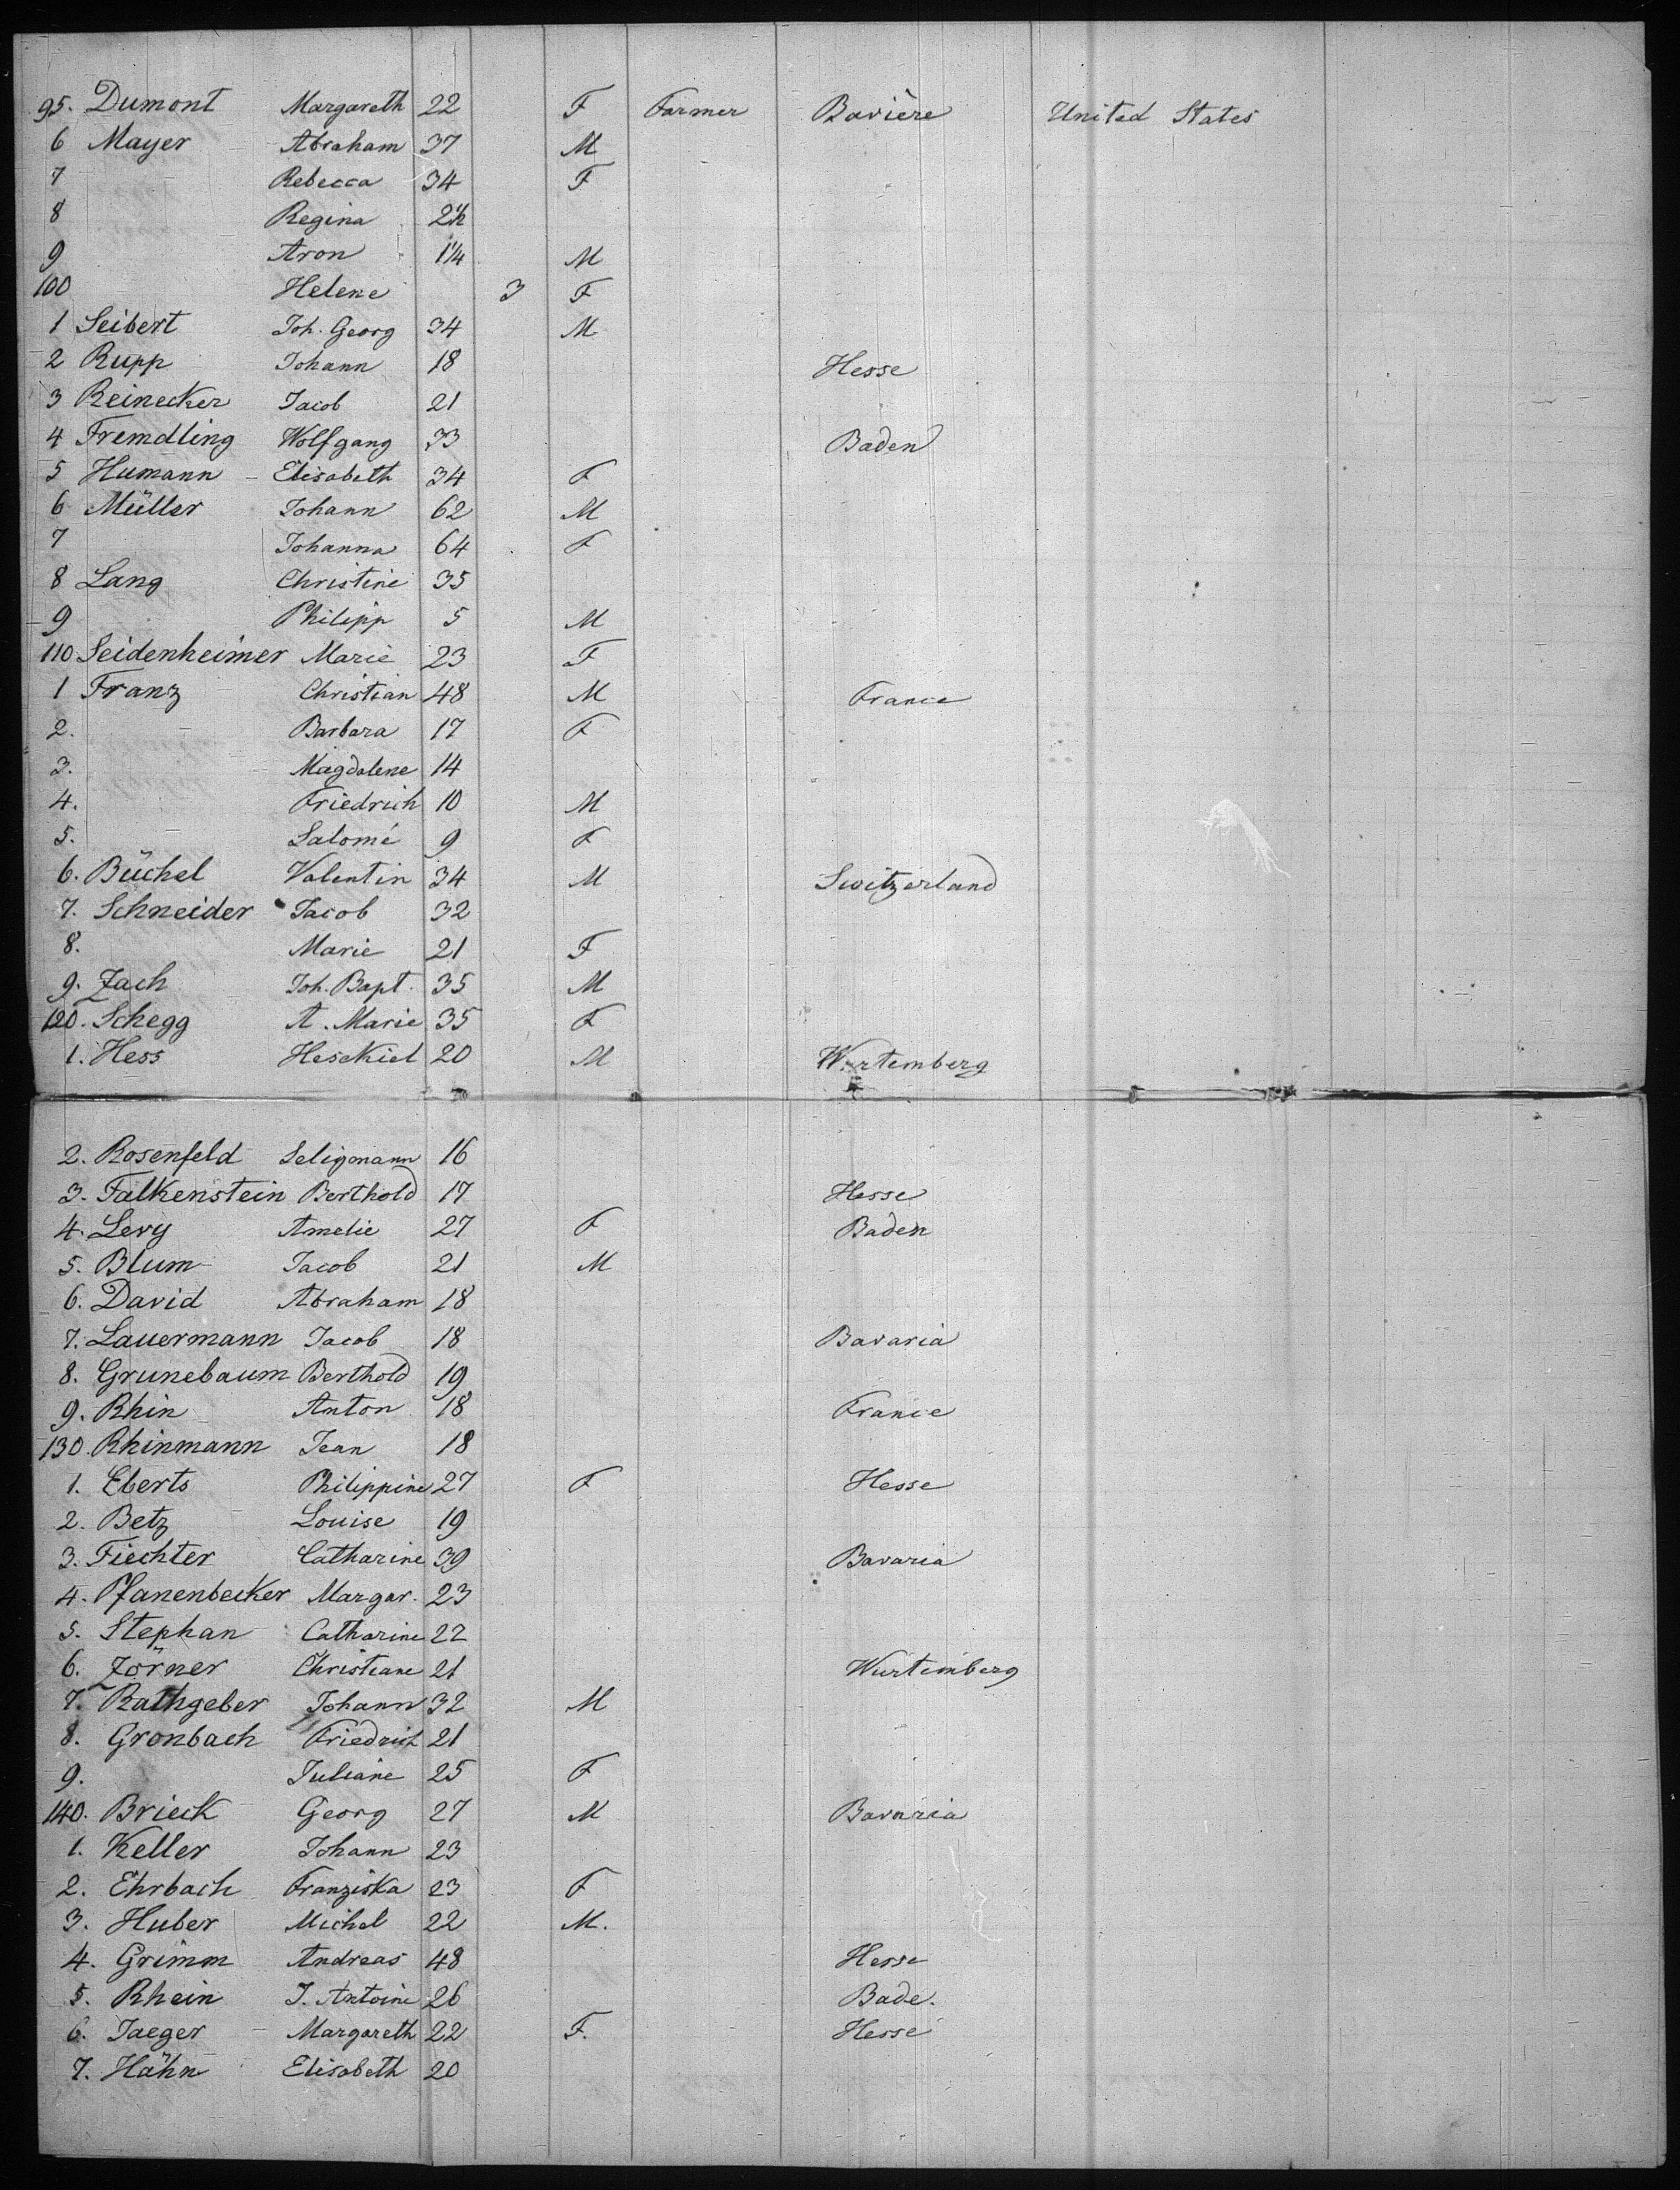 95. Dumont Margareth 22 F Farmer Bavière United States
6 Mayer Abraham 37 M
7 Rebecca 34 F
8 Regina 2½
9 Aron 1¼ M
100 Helene 3 F
1 Seibert Joh. Georg 34 M
2 Rupp Johann 18 Hesse
3 Reinecker Jacob 21
4 Fremdling Wolfgang 33 Baden
5 Humann Elisabeth 34 F
6 Müller Johann 62 M
7 Johanna 64 F
8 Lang Christine 35
9 Philipp 5 M
110 Seidenheimer Marie 23 F
1 Franz Christian 48 M France
2. Barbara 17 F
3. Magdalene 14
4. Friedrich 10 M
5. Salomé 9 F
6. Büchel Valentin 34 M Switzerland
7. Schneider Jacob 32
8. Marie 21 F
9. Zach Joh. Bapt. 35 M
120. Schegg A. Marie 35 F
1. Hess Hesekiel 20 M Wurtemberg
2. Rosenfeld Seligmann 16
3. Falkenstein Berthold 17 Hesse
4. Levy Amelie 27 F Baden
5. Blum Jacob 21 M
6. David Abraham 18
7. Lauermann Jacob 18 Bavaria
8. Grunebaum Berthold 19
9. Rhin Anton 18 France
130. Rhinmann Jean 18
1. Eberts Philippine 27 F Hesse
2. Betz Louise 19
3. Fiechter Catharine 39 Bavaria
4. Pfanenbecker Margar. 23
5. Stephan Catharine 22
6. Zörner Christiane 21 Wurtemberg
7. Rathgeber Johann 32 M
8. Gronbach Friedrich 21
9. Juliane 25 F
140. Brieck Georg 27 M Bavaria
1. Keller Johann 23
2. Ehrbach Franziska 23 F
3. Huber Michel 22 M.
4. Grimm Andreas 48 Hesse
5. Rhein J. Antoine 26 Bade.
6. Jaeger Margareth 22 F. Hesse
7. Hähn Elisabeth 20